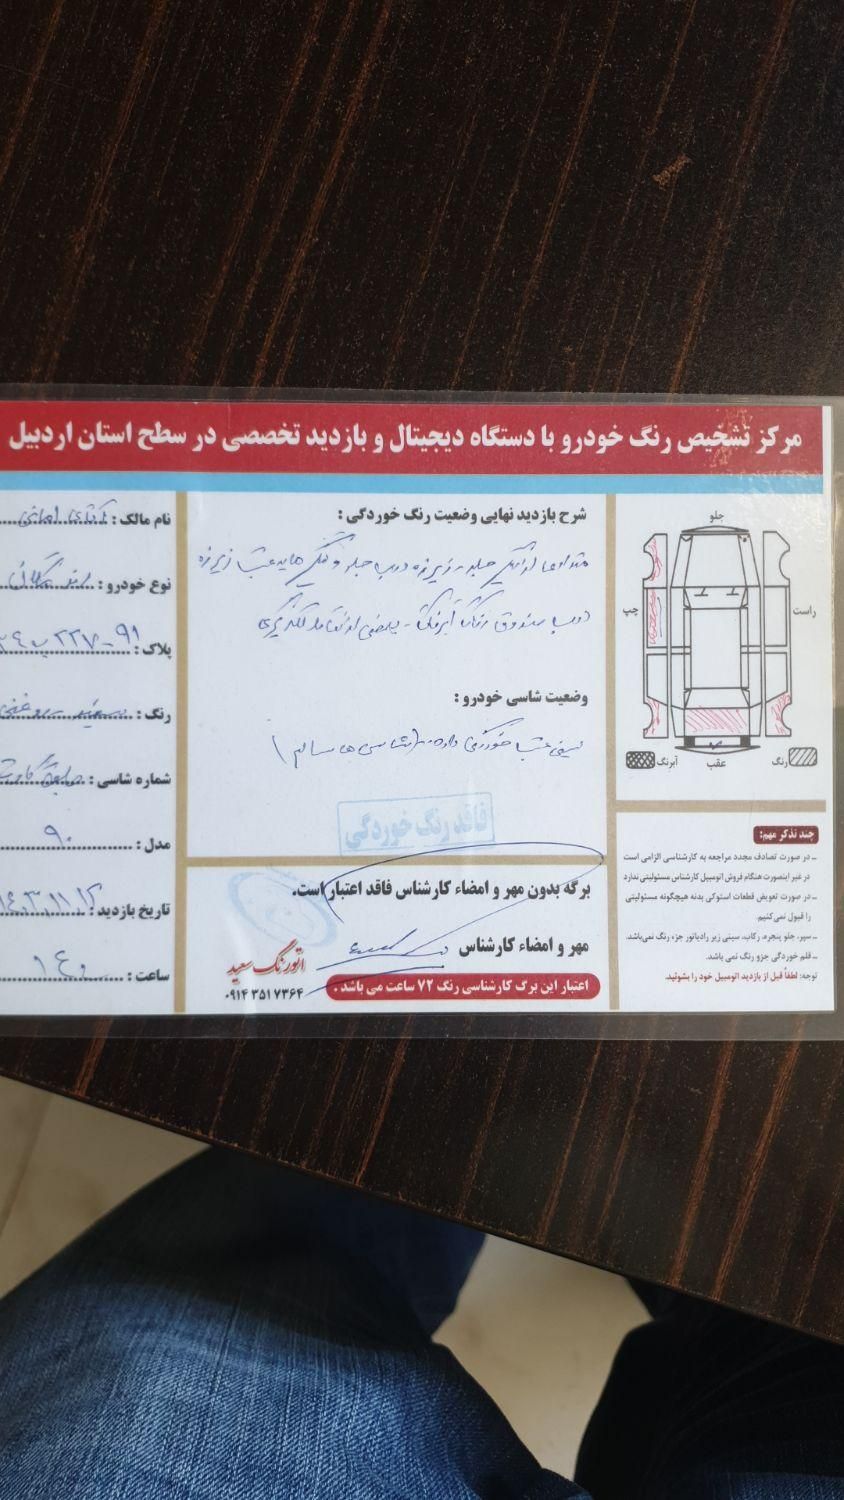 مرکز تشخیص رنگ خودرو با دستگاه دیجیتال و بازدید تخصصی در سطح استان اردبیل
جلو
راست
چپ
عقب
رنگ
آبرنگ
چند تذکر مهم:
ـ در صورت تصادف مجدد مراجعه به کارشناسی الزامی است
در غیر اینصورت هنگام فروش اتومبیل کارشناس مسئولیتی ندارد
ـ در صورت تعویض قطعات استوکی بدنه هیچگونه مسئولیتی
را قبول نمی‌کنیم.
ـ سپر، جلو پنجره، رکاب، سینی زیر رادیاتور جزء رنگ نمی‌باشد.
ـ قلم خوردگی جزو رنگ نمی باشد.
توجه: لطفاً قبل از بازدید اتومبیل خود را بشوئید.
شرح بازدید نهایی وضعیت رنگ خوردگی :
گلگیر جلو - زیر زه درب جلو و گلگیر های عقب زیر زه
درب صندوق رنگ آبرنگ - بعضی از نقاط لکه گیری
وضعیت شاسی خودرو :
سینی عقب خوردگی دارد (شاسی ها سالم)
فاقد رنگ خوردگی
برگه بدون مهر و امضاء کارشناس فاقد اعتبار است.
مهر و امضاء کارشناس
اتورنگ سعید
۰۹۱۴ ۳۵۱ ۷۳۶۴
اعتبار این برگ کارشناسی رنگ ۷۲ ساعت می باشد .
نام مالک : آقای
نوع خودرو :
پلاک : ۹۱-۲۲۷
رنگ : سفید روغنی
شماره شاسی :
مدل : ۹۰
تاریخ بازدید : ۱۴۰۳,۱۱,۱۲
ساعت :